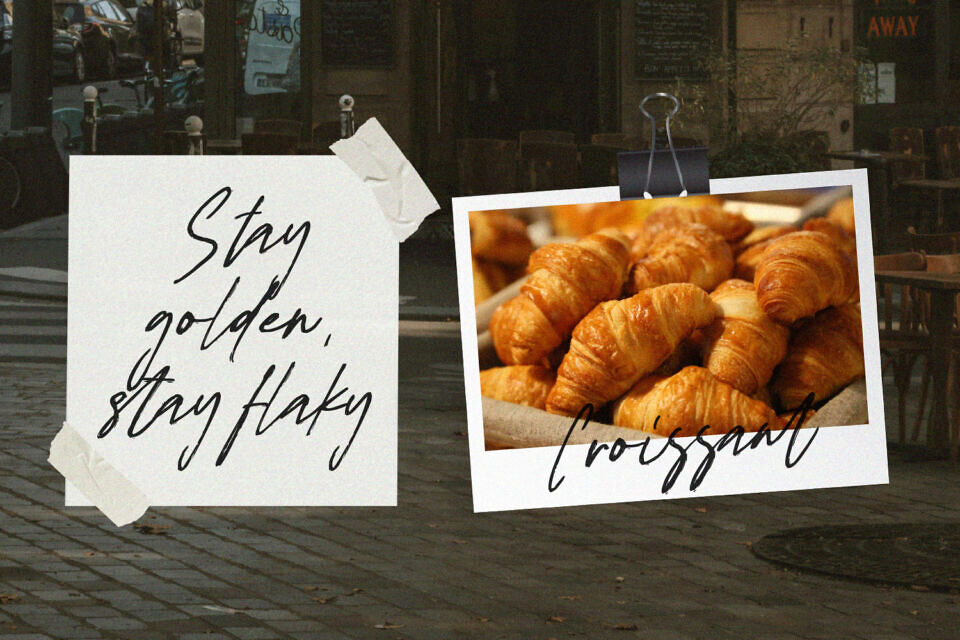 Stay
golden,
stay flaky
Croissant
AWAY